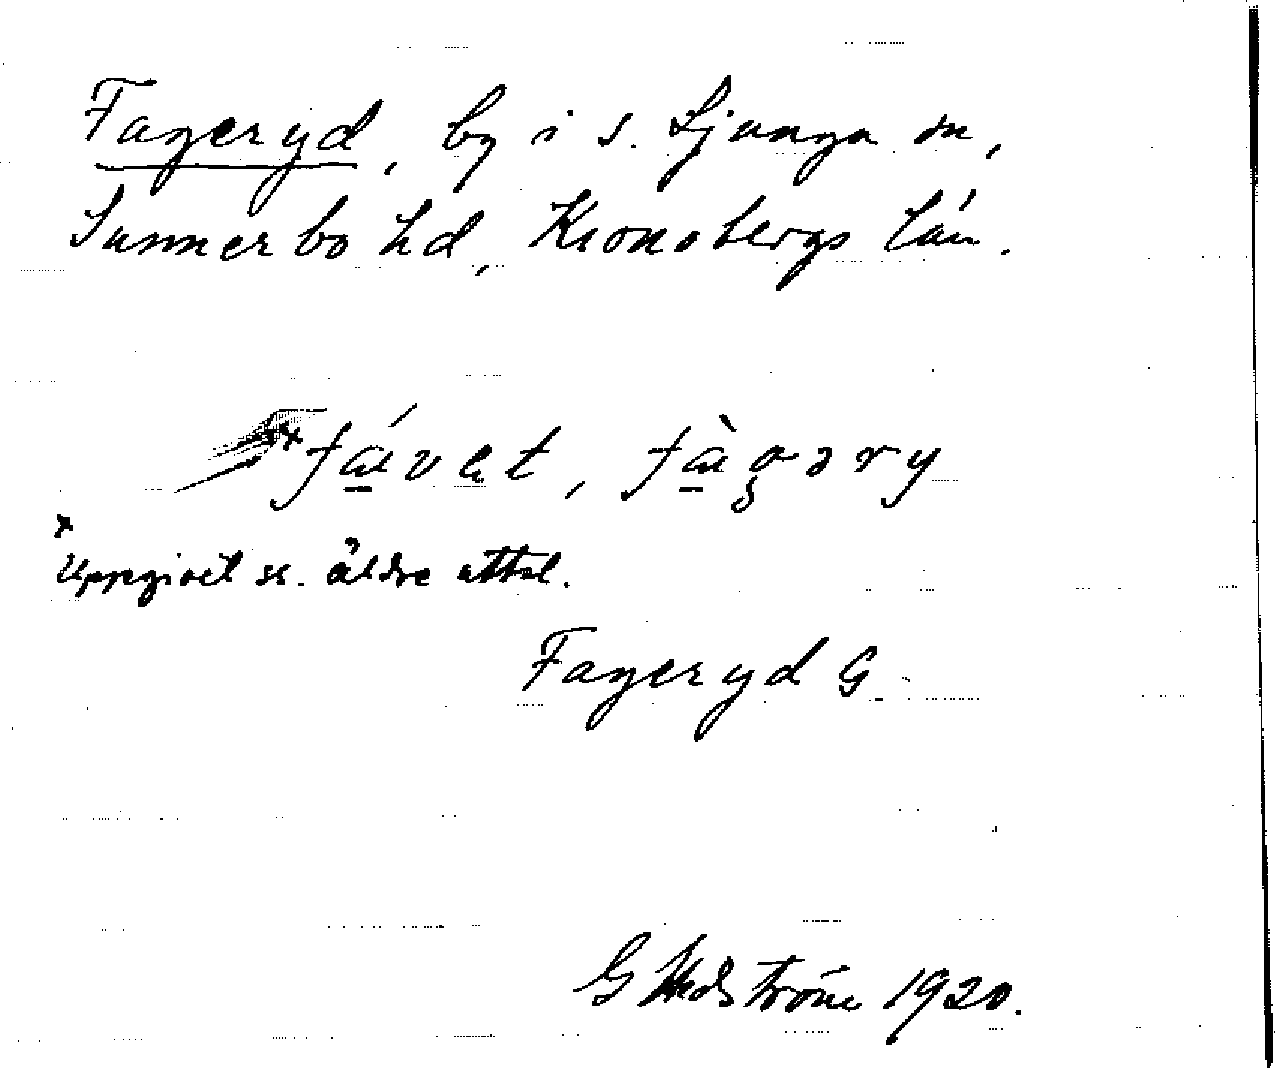 Fageryd, by i s. Ljunga sn,
Sunnerbo hd, Kronobergs län.
x fávet, fàgəry
x
Uppgivet ss. äldre uttal.
Fageryd G.
G Hedström 1920.